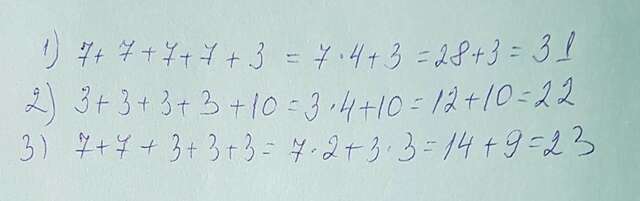 1) 7+7+7+7+3 = 7·4+3 = 28+3 = 31
2) 3+3+3+3+10 = 3·4+10 = 12+10 = 22
3) 7+7+3+3+3 = 7·2+3·3 = 14+9 = 23